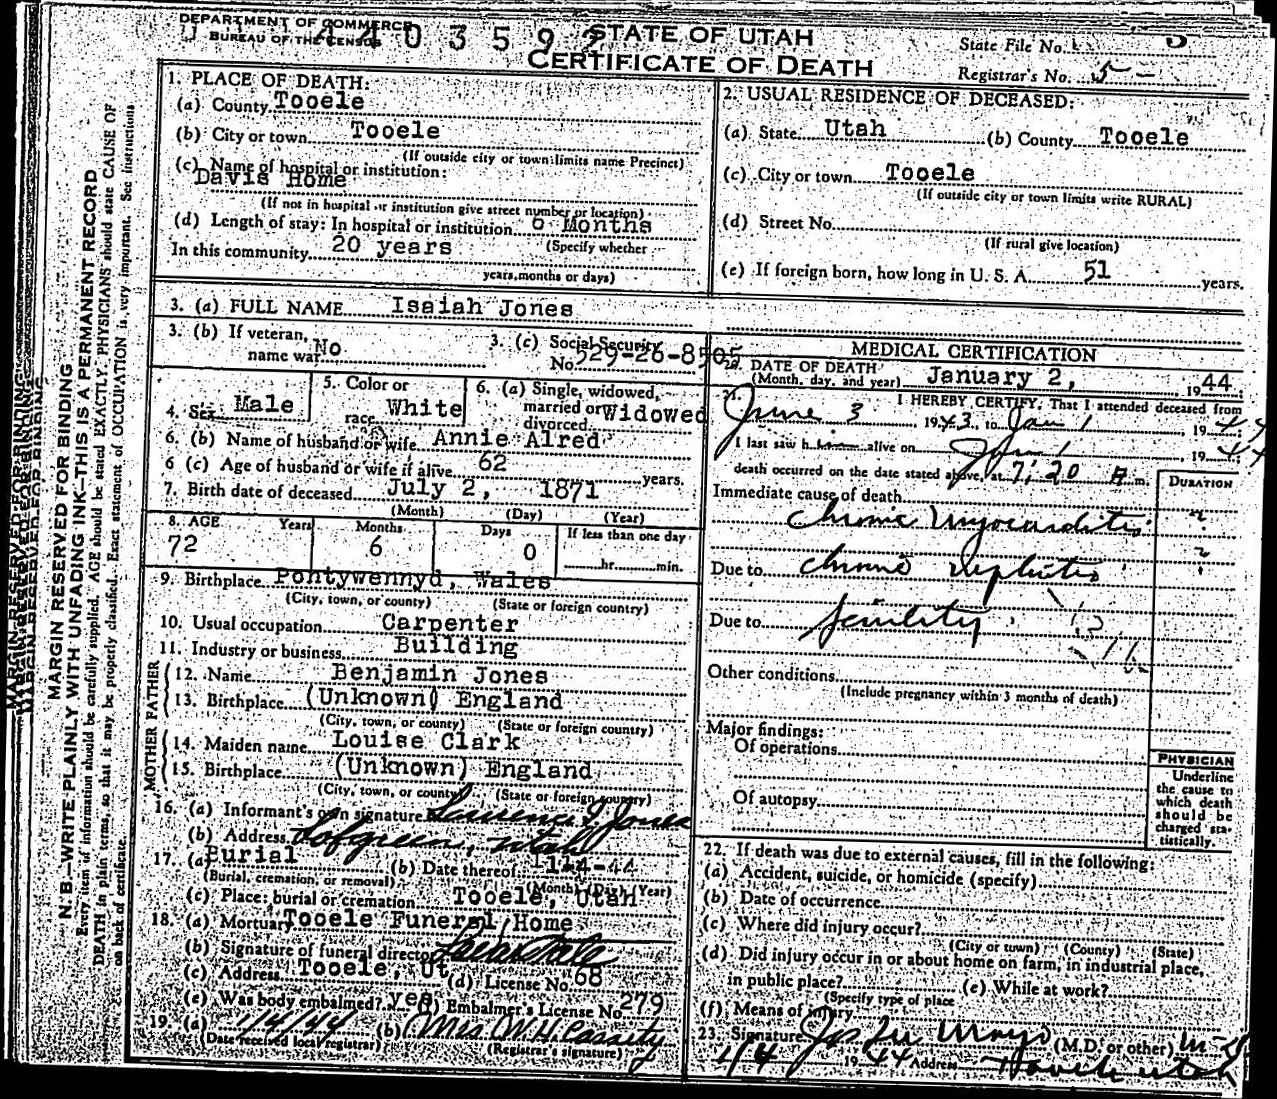 DEPARTMENT OF COMMERCE
BUREAU OF THE CENSUS
4 4 0 3 5 9
STATE OF UTAH
CERTIFICATE OF DEATH
State File No.
Registrar's No. 5 -
MARGIN RESERVED FOR BINDING
N. B.—WRITE PLAINLY WITH UNFADING INK—THIS IS A PERMANENT RECORD
Every item of information should be carefully supplied. AGE should be stated EXACTLY. PHYSICIANS should state CAUSE OF
DEATH in plain terms, so that it may be properly classified. Exact statement of OCCUPATION is very important. See instructions
on back of certificate.
1. PLACE OF DEATH:
(a) County Tooele
(b) City or town Tooele
(If outside city or town limits name Precinct)
(c) Name of hospital or institution:
Davis Home
(If not in hospital or institution give street number or location)
(d) Length of stay: In hospital or institution 6 Months
(Specify whether
In this community 20 years
years, months or days)
2. USUAL RESIDENCE OF DECEASED:
(a) State Utah (b) County Tooele
(c) City or town Tooele
(If outside city or town limits write RURAL)
(d) Street No.
(If rural give location)
(e) If foreign born, how long in U. S. A. 51 years.
3. (a) FULL NAME Isaiah Jones
3. (b) If veteran, name war No
3. (c) Social Security No. 529-26-8505
4. Sex Male
5. Color or race White
6. (a) Single, widowed, married or divorced Widowed
6. (b) Name of husband or wife Annie Alred
6 (c) Age of husband or wife if alive 62 years.
7. Birth date of deceased July 2, 1871
(Month) (Day) (Year)
8. AGE Years Months Days If less than one day
72 6 0 hr. min.
9. Birthplace Pontywennyd, Wales
(City, town, or county) (State or foreign country)
10. Usual occupation Carpenter
11. Industry or business Building
FATHER
12. Name Benjamin Jones
13. Birthplace (Unknown) England
(City, town, or county) (State or foreign country)
MOTHER
14. Maiden name Louise Clark
15. Birthplace (Unknown) England
(City, town, or county) (State or foreign country)
16. (a) Informant's own signature Lawrence I Jones
(b) Address Lofgreen, Utah
17. (a) Burial (b) Date thereof 1-4-44
(Burial, cremation, or removal) (Month) (Day) (Year)
(c) Place: burial or cremation Tooele, Utah
18. (a) Mortuary Tooele Funeral Home
(b) Signature of funeral director
(c) Address Tooele, Ut (d) License No. 68
(e) Was body embalmed? yes Embalmer's License No. 279
19. (a) 1/4/44 (b) Mrs W. H. Cassity
(Date received local registrar) (Registrar's signature)
MEDICAL CERTIFICATION
20. DATE OF DEATH
(Month, day, and year) January 2, 1944
21. I HEREBY CERTIFY, That I attended deceased from
June 3 1943, to Jan 1 1944
I last saw him alive on Jan 1, 1944
death occurred on the date stated above, at 7:20 A m.
DURATION
Immediate cause of death
Chronic Myocarditis ?
Due to Chronic Nephritis ?
Due to Senility
Other conditions
(Include pregnancy within 3 months of death)
Major findings:
Of operations
Of autopsy
PHYSICIAN
Underline
the cause to
which death
should be
charged sta-
tistically.
22. If death was due to external causes, fill in the following:
(a) Accident, suicide, or homicide (specify)
(b) Date of occurrence
(c) Where did injury occur?
(City or town) (County) (State)
(d) Did injury occur in or about home on farm, in industrial place,
in public place? (e) While at work?
(Specify type of place
(f) Means of injury
23. Signature Mayo (M.D. or other) M-D
1/4 1944 Address Tooele Utah